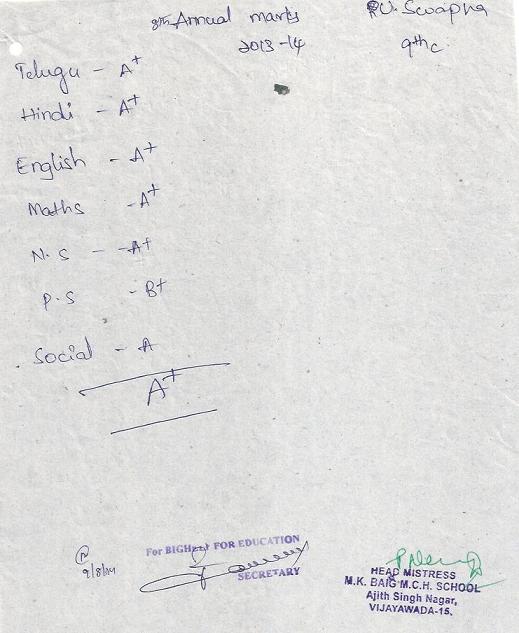 8th Annual marks
U. Swapna
2013-14
9th c.
Telugu - A+
Hindi - A+
English - A+
Maths - A+
N.S - - A+
P.S - B+
Social - A
A+
9/8/14
For BIGHELP FOR EDUCATION
SECRETARY
HEAD MISTRESS
M.K. BAIG M.C.H. SCHOOL
Ajith Singh Nagar,
VIJAYAWADA-15.